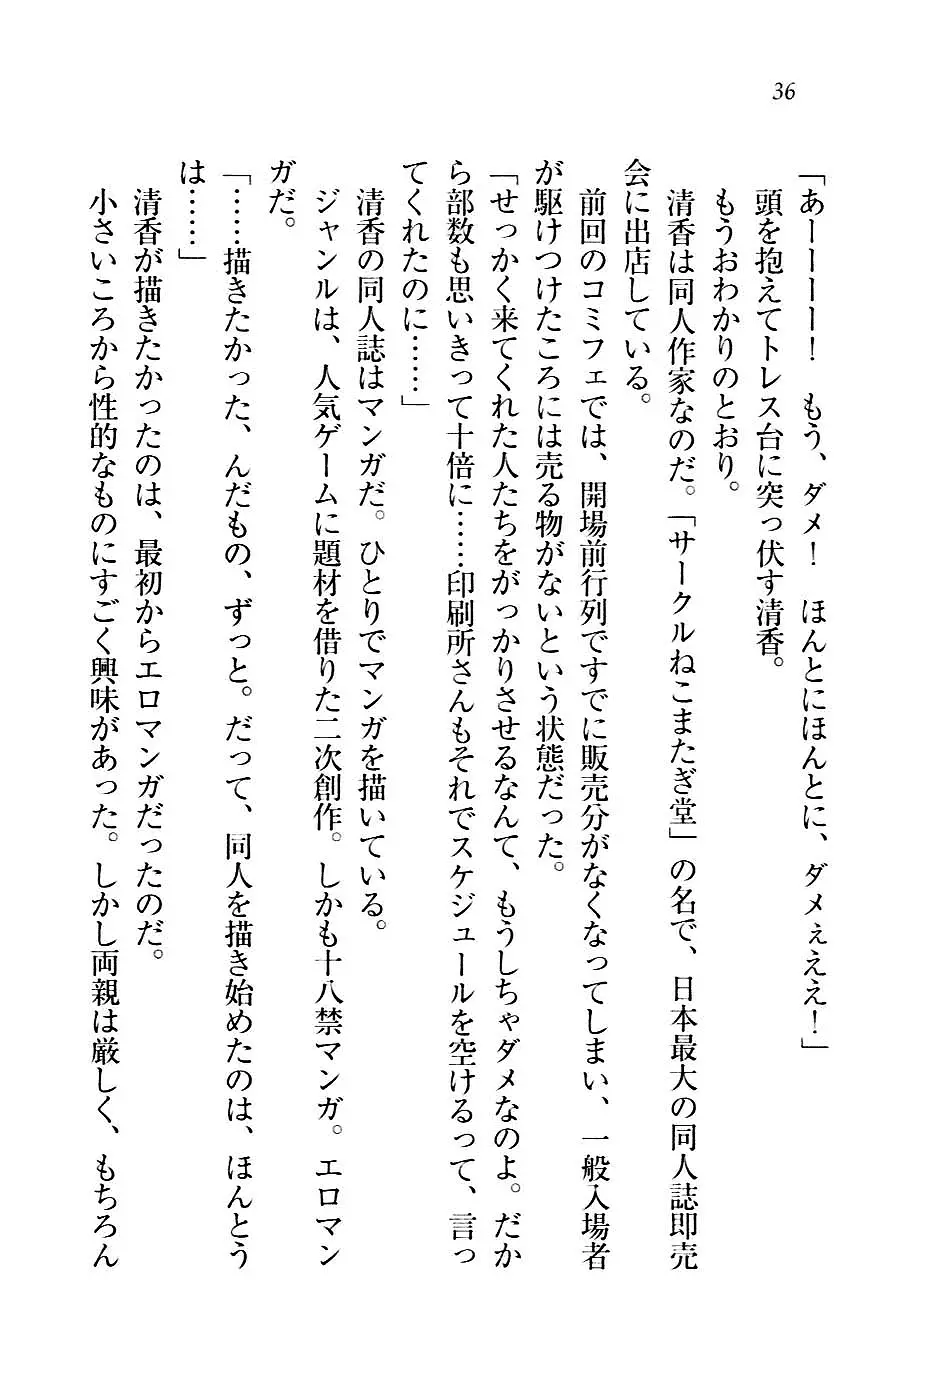 36
「あーーーー！　もう、ダメ！　ほんとにほんとに、ダメぇええ！」
頭を抱えてトレス台に突っ伏す清香。
もうおわかりのとおり。
清香は同人作家なのだ。「サークルねこまたぎ堂」の名で、日本最大の同人誌即売
会に出店している。
前回のコミフェでは、開場前行列ですでに販売分がなくなってしまい、一般入場者
が駆けつけたころには売る物がないという状態だった。
「せっかく来てくれた人たちをがっかりさせるなんて、もうしちゃダメなのよ。だか
ら部数も思いきって十倍に……印刷所さんもそれでスケジュールを空けるって、言っ
てくれたのに……」
清香の同人誌はマンガだ。ひとりでマンガを描いている。
ジャンルは、人気ゲームに題材を借りた二次創作。しかも十八禁マンガ。エロマン
ガだ。
「……描きたかった、んだもの、ずっと。だって、同人を描き始めたのは、ほんとう
は……」
清香が描きたかったのは、最初からエロマンガだったのだ。
小さいころから性的なものにすごく興味があった。しかし両親は厳しく、もちろん